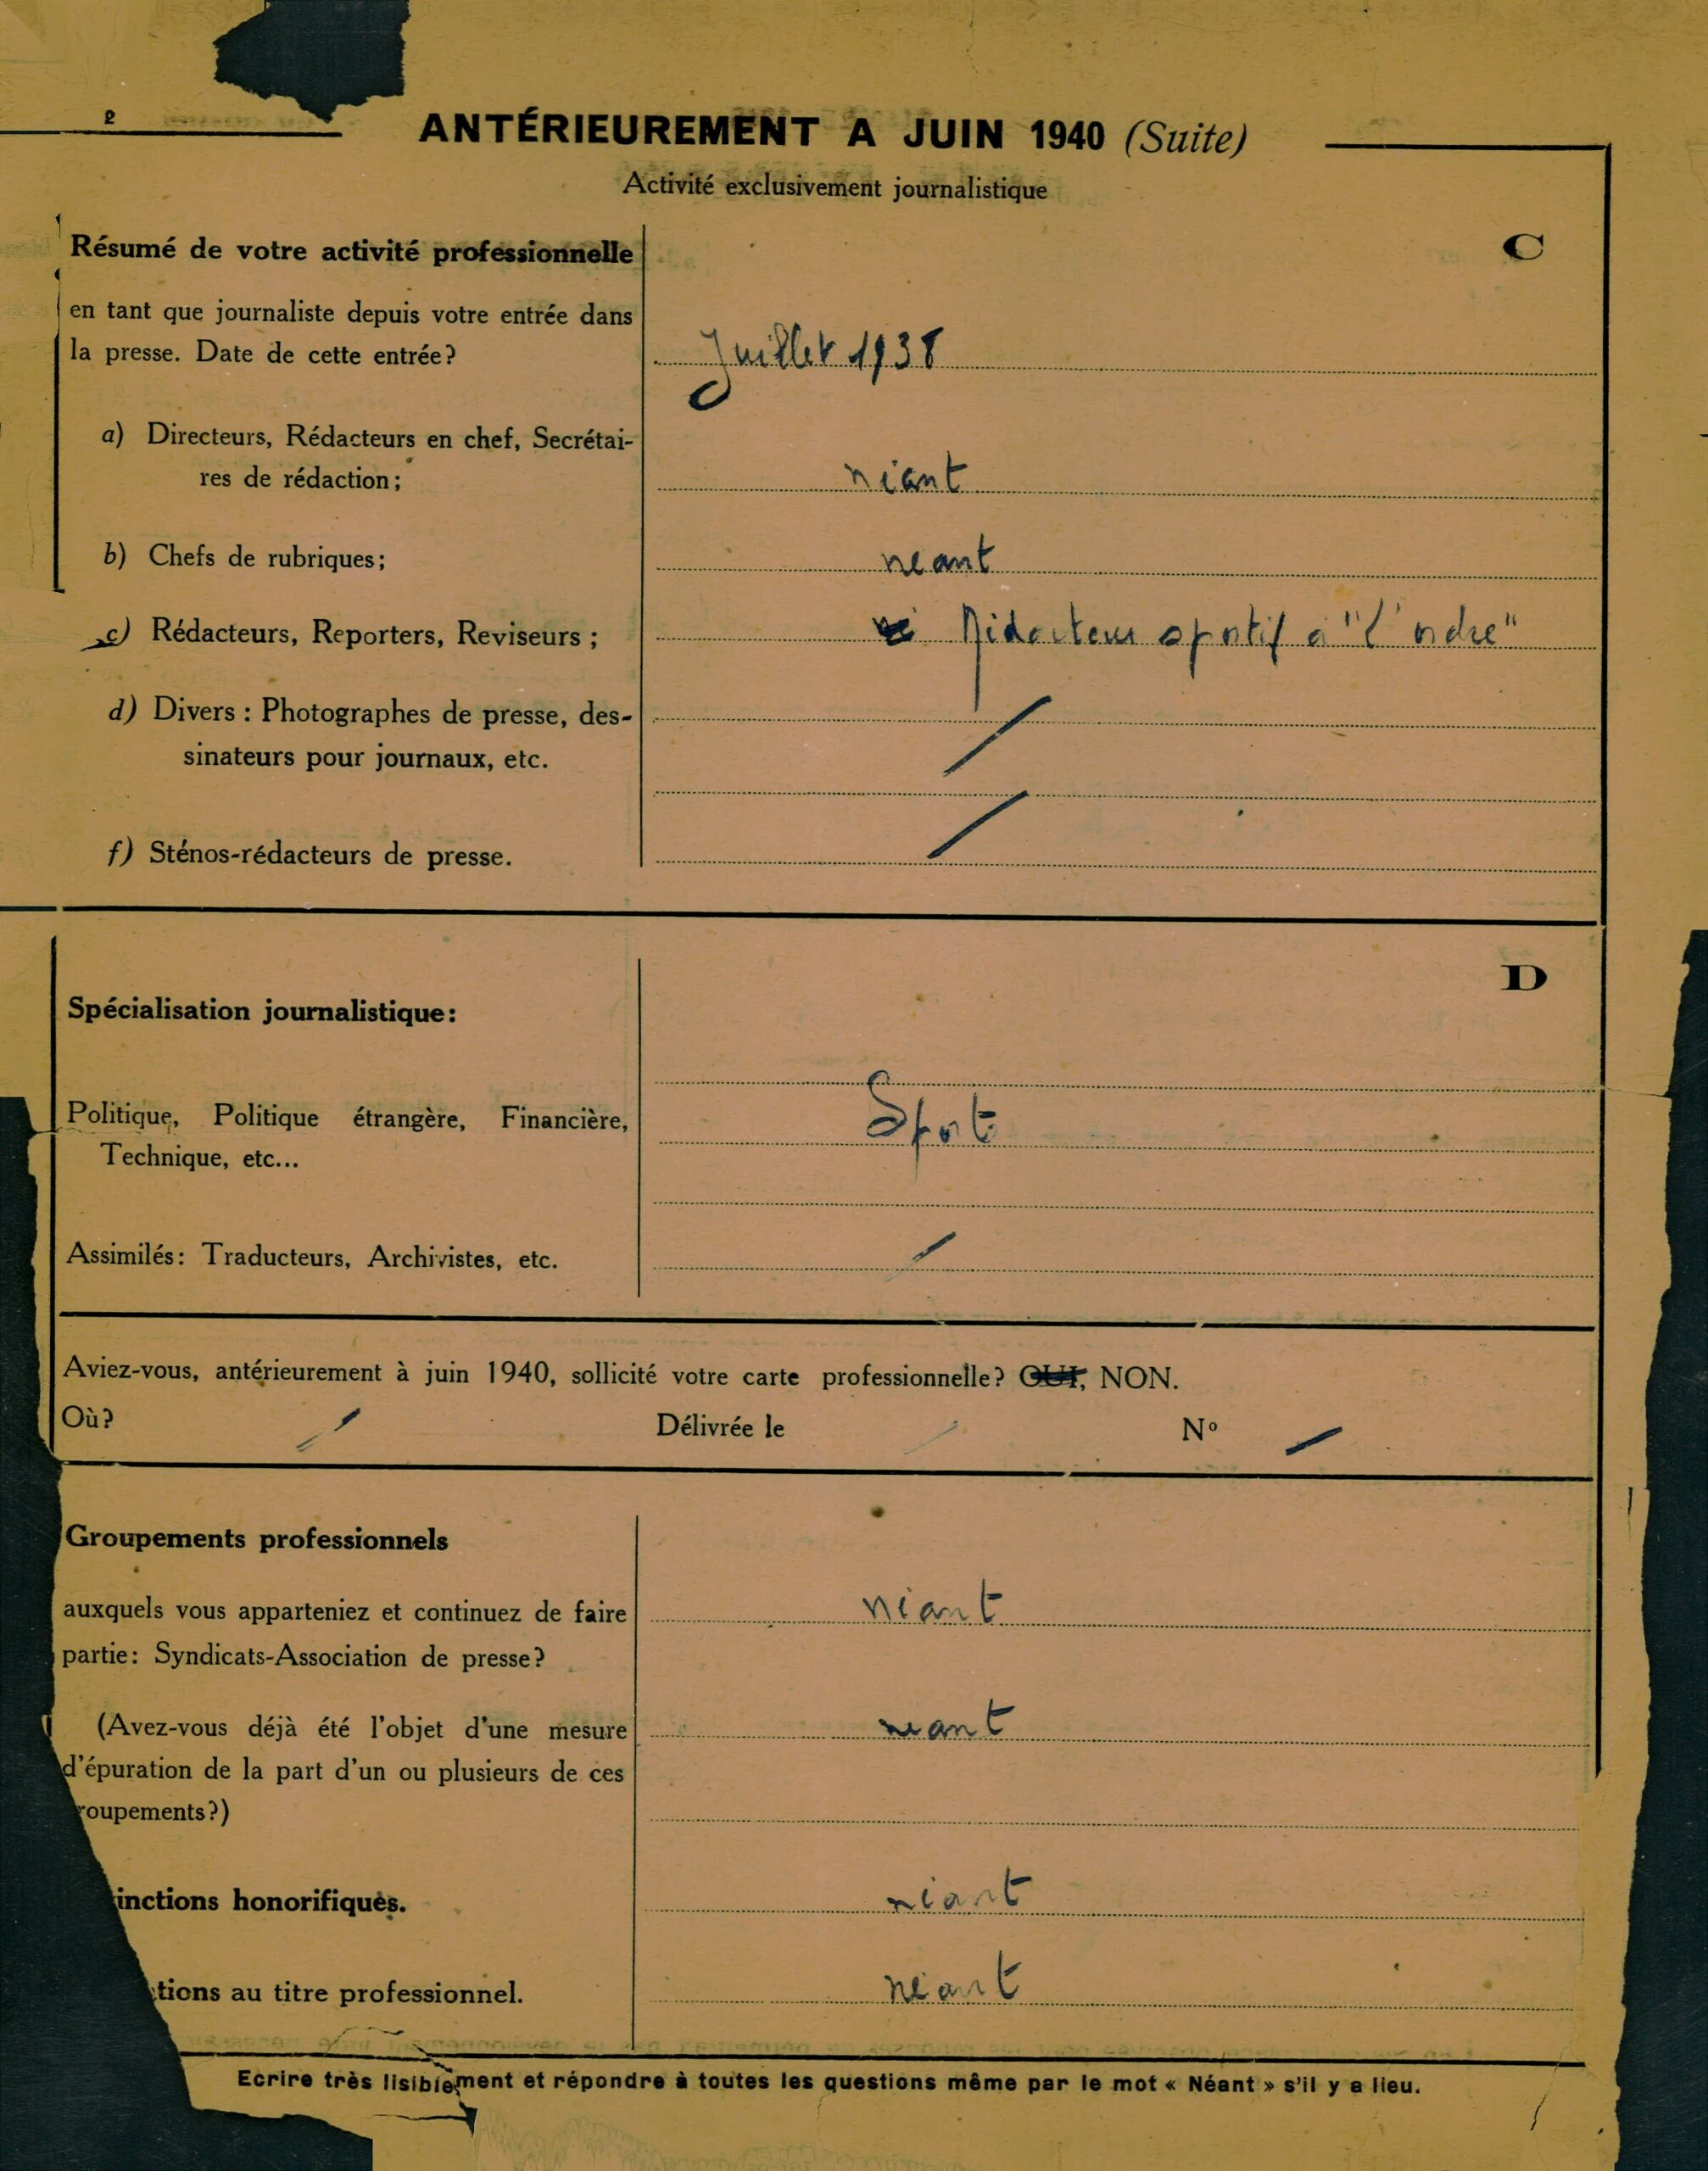 2
ANTÉRIEUREMENT A JUIN 1940 (Suite)
Activité exclusivement journalistique
C
Résumé de votre activité professionnelle
en tant que journaliste depuis votre entrée dans
la presse. Date de cette entrée? Juillet 1938
a) Directeurs, Rédacteurs en chef, Secrétai-
res de rédaction; néant
b) Chefs de rubriques; neant
c) Rédacteurs, Reporters, Reviseurs; Rédacteur sportif à "l'ordre"
d) Divers: Photographes de presse, des-
sinateurs pour journaux, etc. /
f) Sténos-rédacteurs de presse. /
D
Spécialisation journalistique:
Politique, Politique étrangère, Financière, Sport
Technique, etc...
Assimilés: Traducteurs, Archivistes, etc. /
Aviez-vous, antérieurement à juin 1940, sollicité votre carte professionnelle? OUI, NON.
Où? / Délivrée le / Nº /
Groupements professionnels
auxquels vous apparteniez et continuez de faire néant
partie: Syndicats-Association de presse?
(Avez-vous déjà été l'objet d'une mesure neant
d'épuration de la part d'un ou plusieurs de ces
roupements?)
inctions honorifiques. néant
tions au titre professionnel. néant
Ecrire très lisiblement et répondre à toutes les questions même par le mot « Néant » s'il y a lieu.